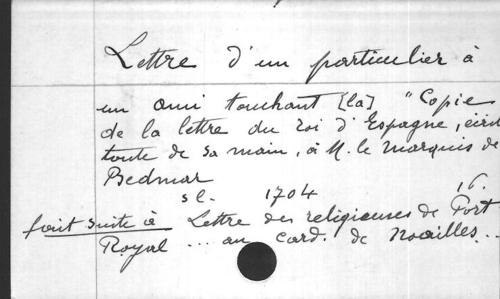 Lettre d'un particulier à
un ami touchant [la] "Copie
de la lettre du roi d'Espagne, écrit
toute de sa main, à M. le Marquis de
Bedmar
sl. 1704 16.
fait suite à Lettre des religieuses de Port
Royal ... au card. de Noailles...